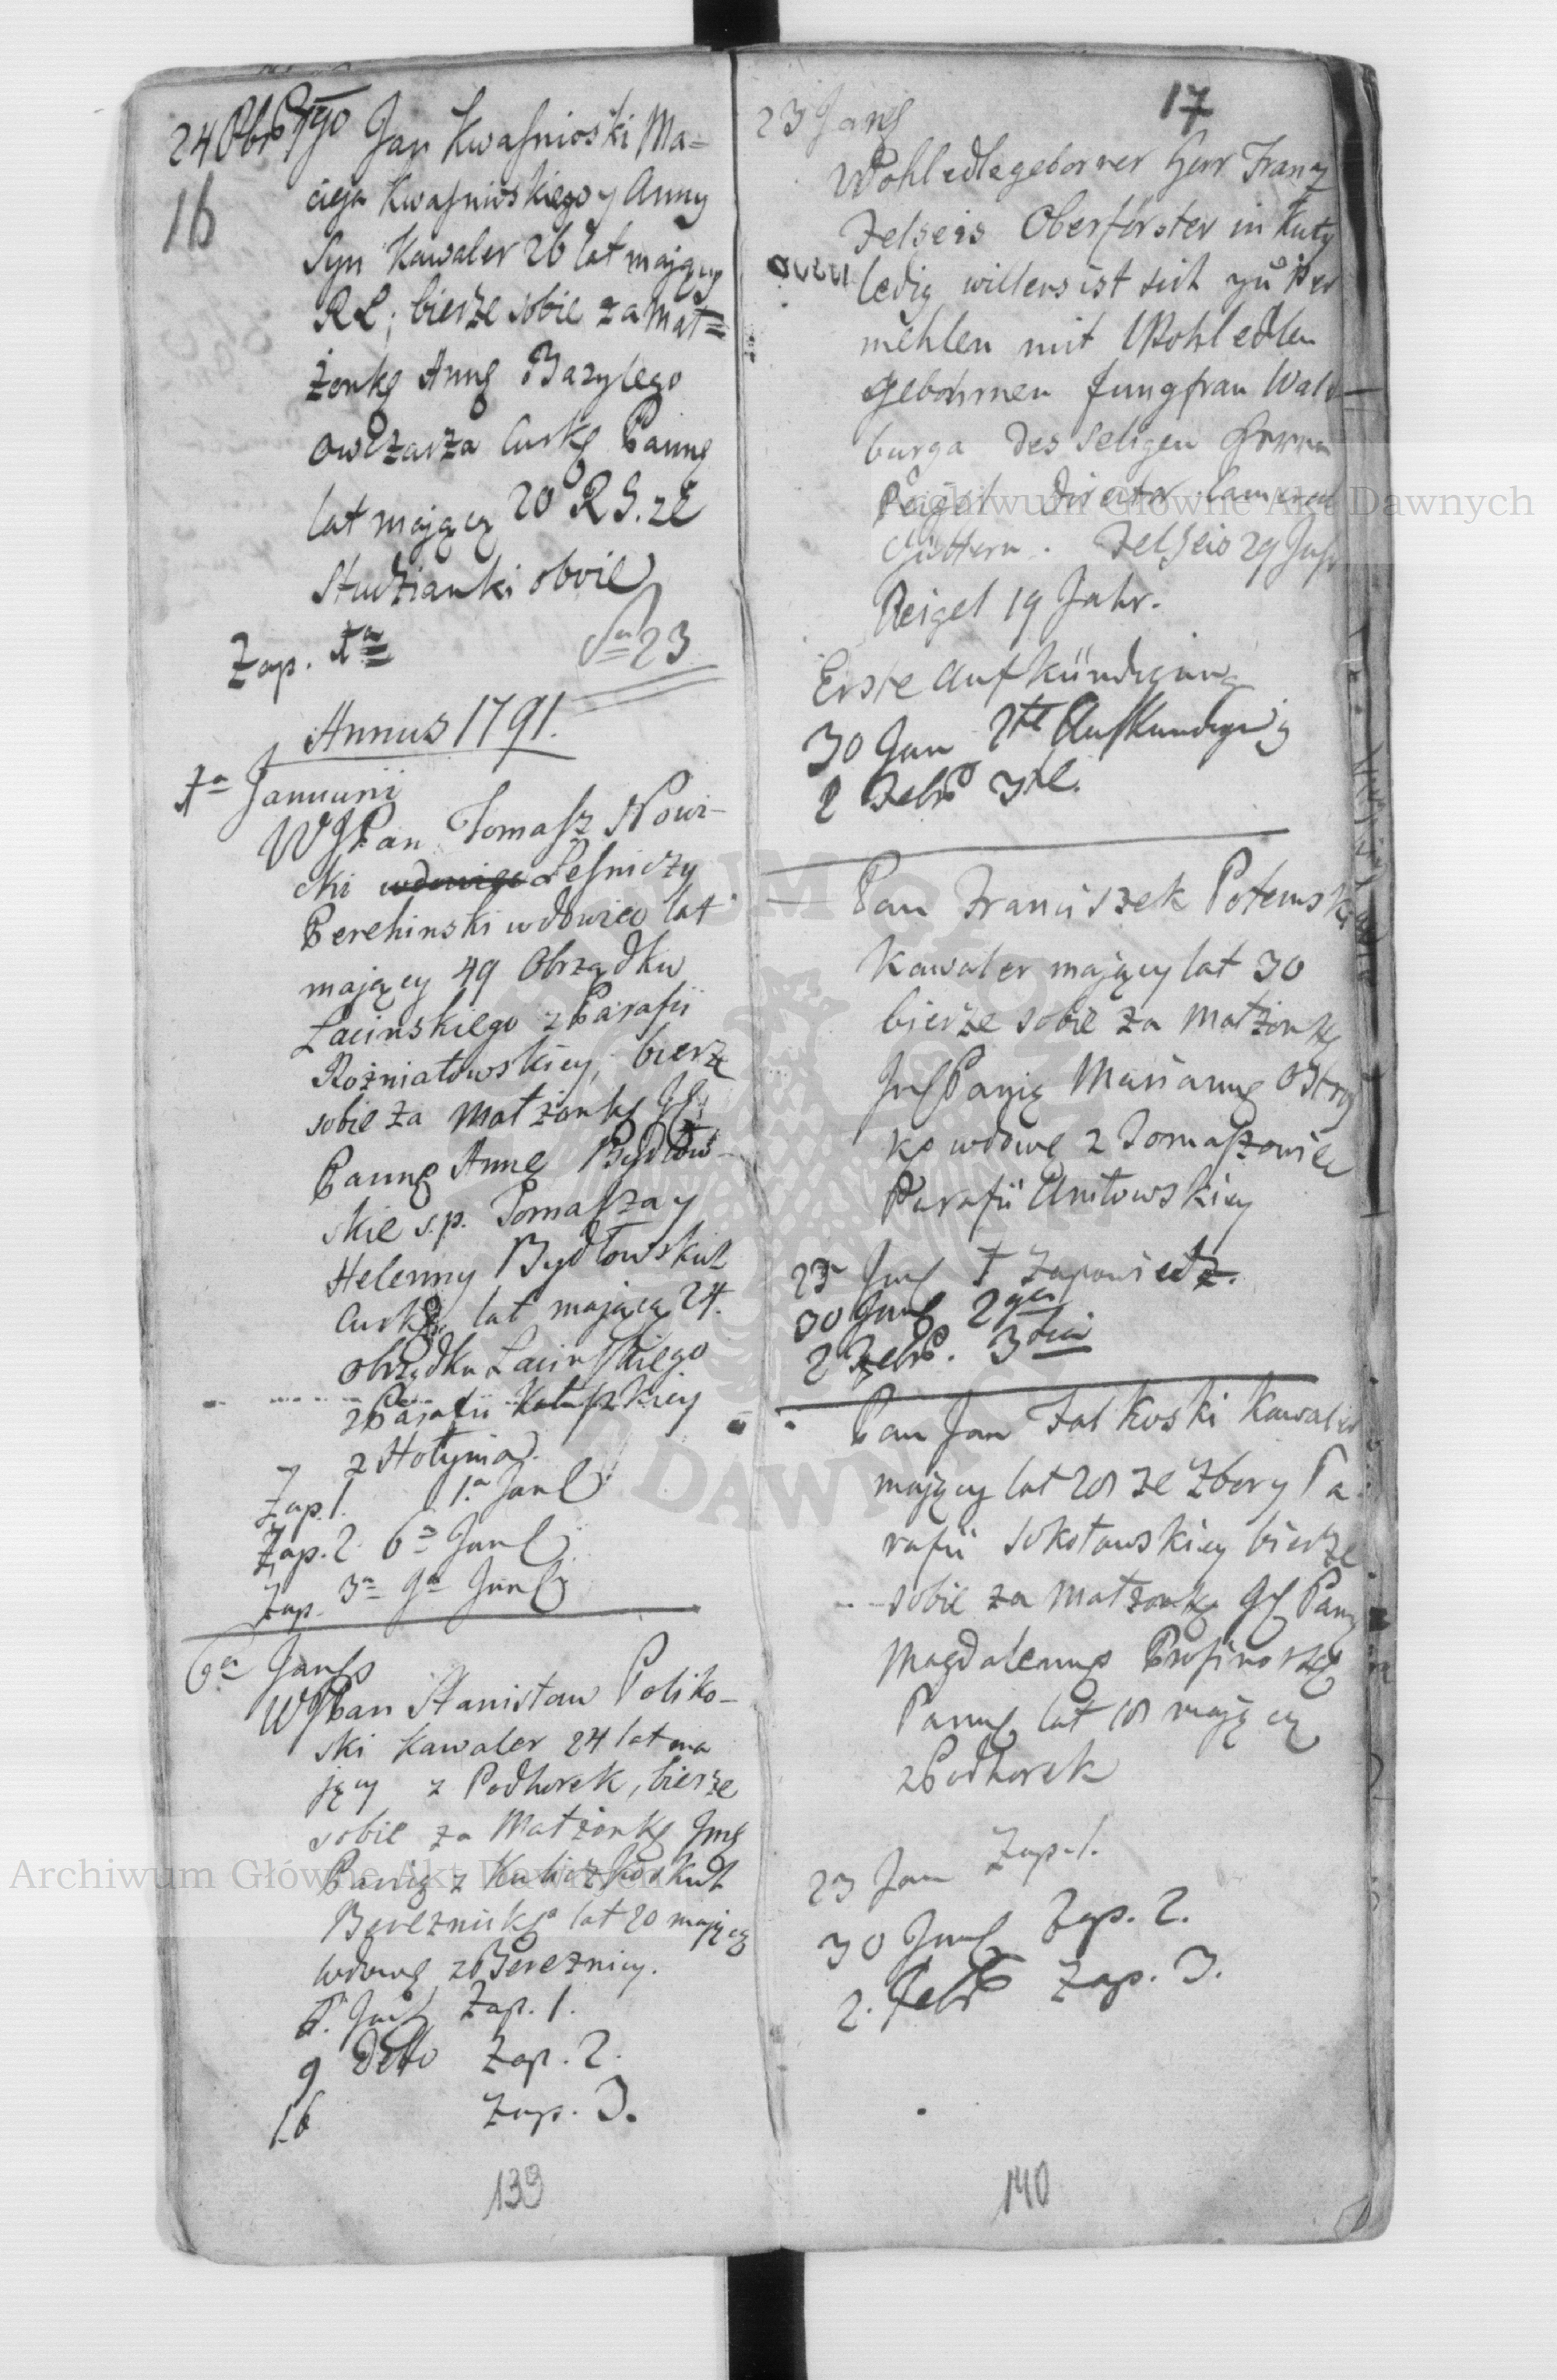 24 Obris
16
Jan Kwaśnioski Ma=
cieja Kwaśnioskiego y Anny
Syn Kawaler 26 lat mający
RL; bierze sobie za Mał=
żonkę Annę Bazylego
Owczarza Curkę Pannę
lat mającą 20 R G. ze
Studzianki oboie
Zap. 1a
Sa 23
Annus 1791.
1a Januarii
WJPan Tomasz Nowi-
cki Leśniczy
Perehinski wdowiec lat
mający 49 Obrządku
Łacinskiego z Parafii
Rożniatowskiey; bierze
sobie za Małżonkę
Pannę Annę Bydłow-
skie s.p. Tomasza y
Helenny Bydłowskich
Curkę lat mającą 24.
obrządku Łacinskiego
z Parafii Kałuszkiey
z Hołynia.
Zap. 1. 1.a Jan
Zap. 2. 6a Jan
Zap. 3a 9a Jan
6a Jan
WJPan Stanisław Poliko-
ski Kawaler 24 lat ma
jący z Podhorek, bierze
sobie za Małżonkę Jmę
Panią z
Bereznicką lat 20 mającą
wdowę z Bereznicy.
6. Jan Zap. 1.
9 detto Zap. 2.
16 Zap. 3.
139
17
23 Jan
Wohledlegeborner Herr Franz
Felseis Oberförster in Kuty
ledig willens ist sich zu Ver
mehlen mit Wohledlen
gebohrnen Jungfrau Wal-
burga des Seligen
Reigel Director Cameral
Güttern. Felseis 29 Jahr
Reigel 19 Jahr.
Erste Aufkündigung
30 Jan 2te Aufkundigung
2 Febr 3te.
Pan Franciszek Potemski
Kawaler mający lat 30
bierze sobie za Małżonkę
Panią Mariannę
wdowę z Tomaszowiec
Parafii
23 Jan 1 Zapowiedz.
30 Jan 2ga
2 Febr. 3cia
Pan Jan Falkoski Kawaler
mający lat 28 ze Zbory Pa
rafii Sokołowskiey bierze
sobie za Małżonkę Pannę
Magdalennę
Pannę lat 18 mającą
z Podhorek
23 Jan Zap. 1.
30 Jan Zap. 2.
2. Febr Zap. 3.
140
Archiwum Główne Akt Dawnych
Archiwum Główne Akt Dawnych